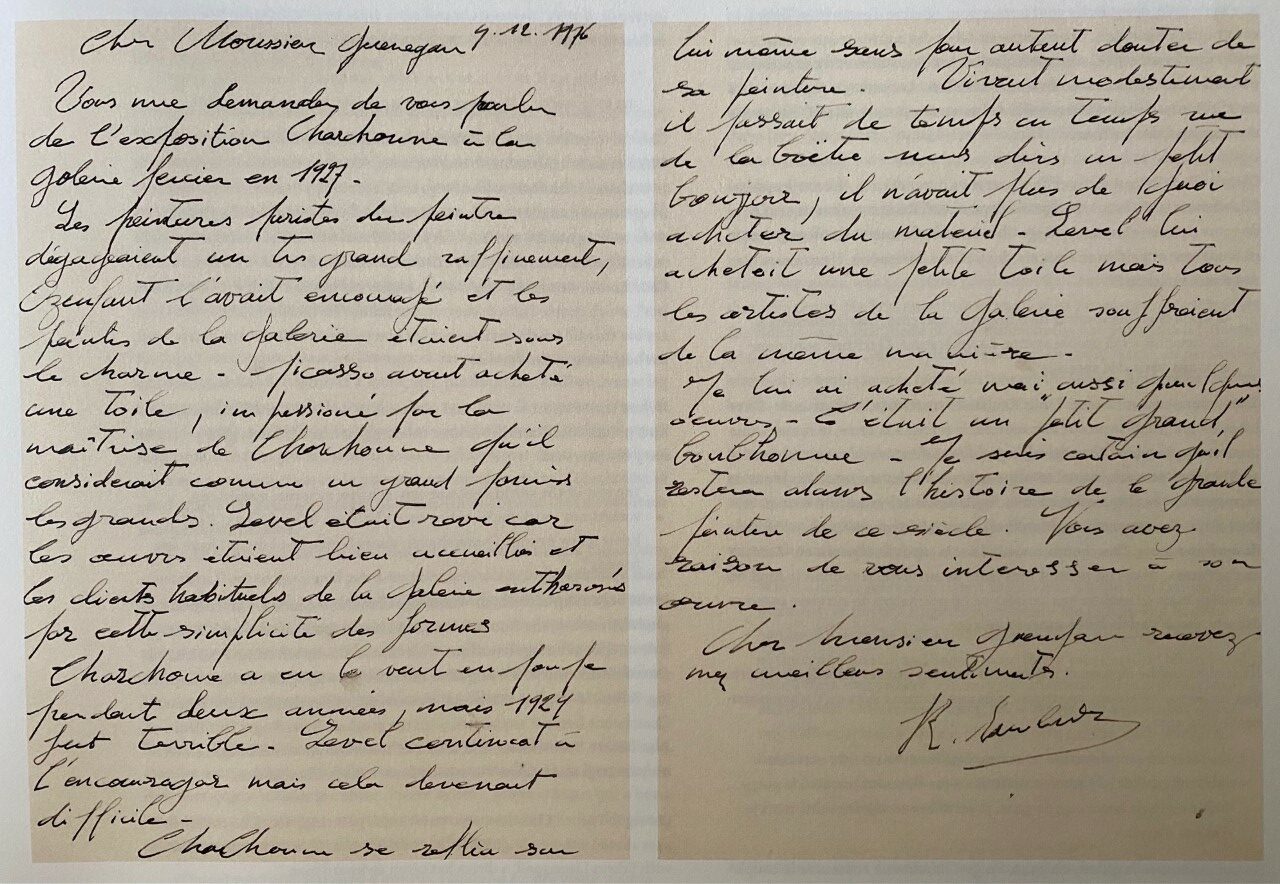 Cher Monsieur Guenegan 9.12.1976
Vous me demandez de vous parler
de l'exposition Charchoune à la
galerie Percier en 1927.
Les peintures puristes du peintre
dégageaient un très grand raffinement,
Ozenfant l'avait encouragé et les
peintres de la galerie étaient sous
le charme - Picasso avait acheté
une toile, impressioné par la
maîtrise de Charchoune qu'il
considerait comme un grand parmis
les grands. Level était ravi car
les œuvres étaient bien accueillies et
les clients habituels de la galerie
par cette simplicité des formes
Charchoune a eu le vent en poupe
pendant deux années, mais 1929
fut terrible - Level continuat à
l'encourager mais cela devenait
difficile -
Charchoune se replia sur
lui même sans pour autant douter de
sa peinture. Vivant modestement
il passait de temps en temps rue
de la boëtie nous dire un petit
bonjour, il n'avait plus de quoi
acheter du materiel - Level lui
achetait une petite toile mais tous
les artistes de la galerie souffraient
de la même manière -
Je lui ai acheté moi aussi quelques
œuvres - C'était un "petit grand"
bonhomme - Je suis certain qu'il
restera dans l'histoire de la grande
peinture de ce siècle. Vous avez
raison de vous interesser à son
œuvre.
Cher Monsieur Guenegan recevez
mes meilleurs sentiments.
R.